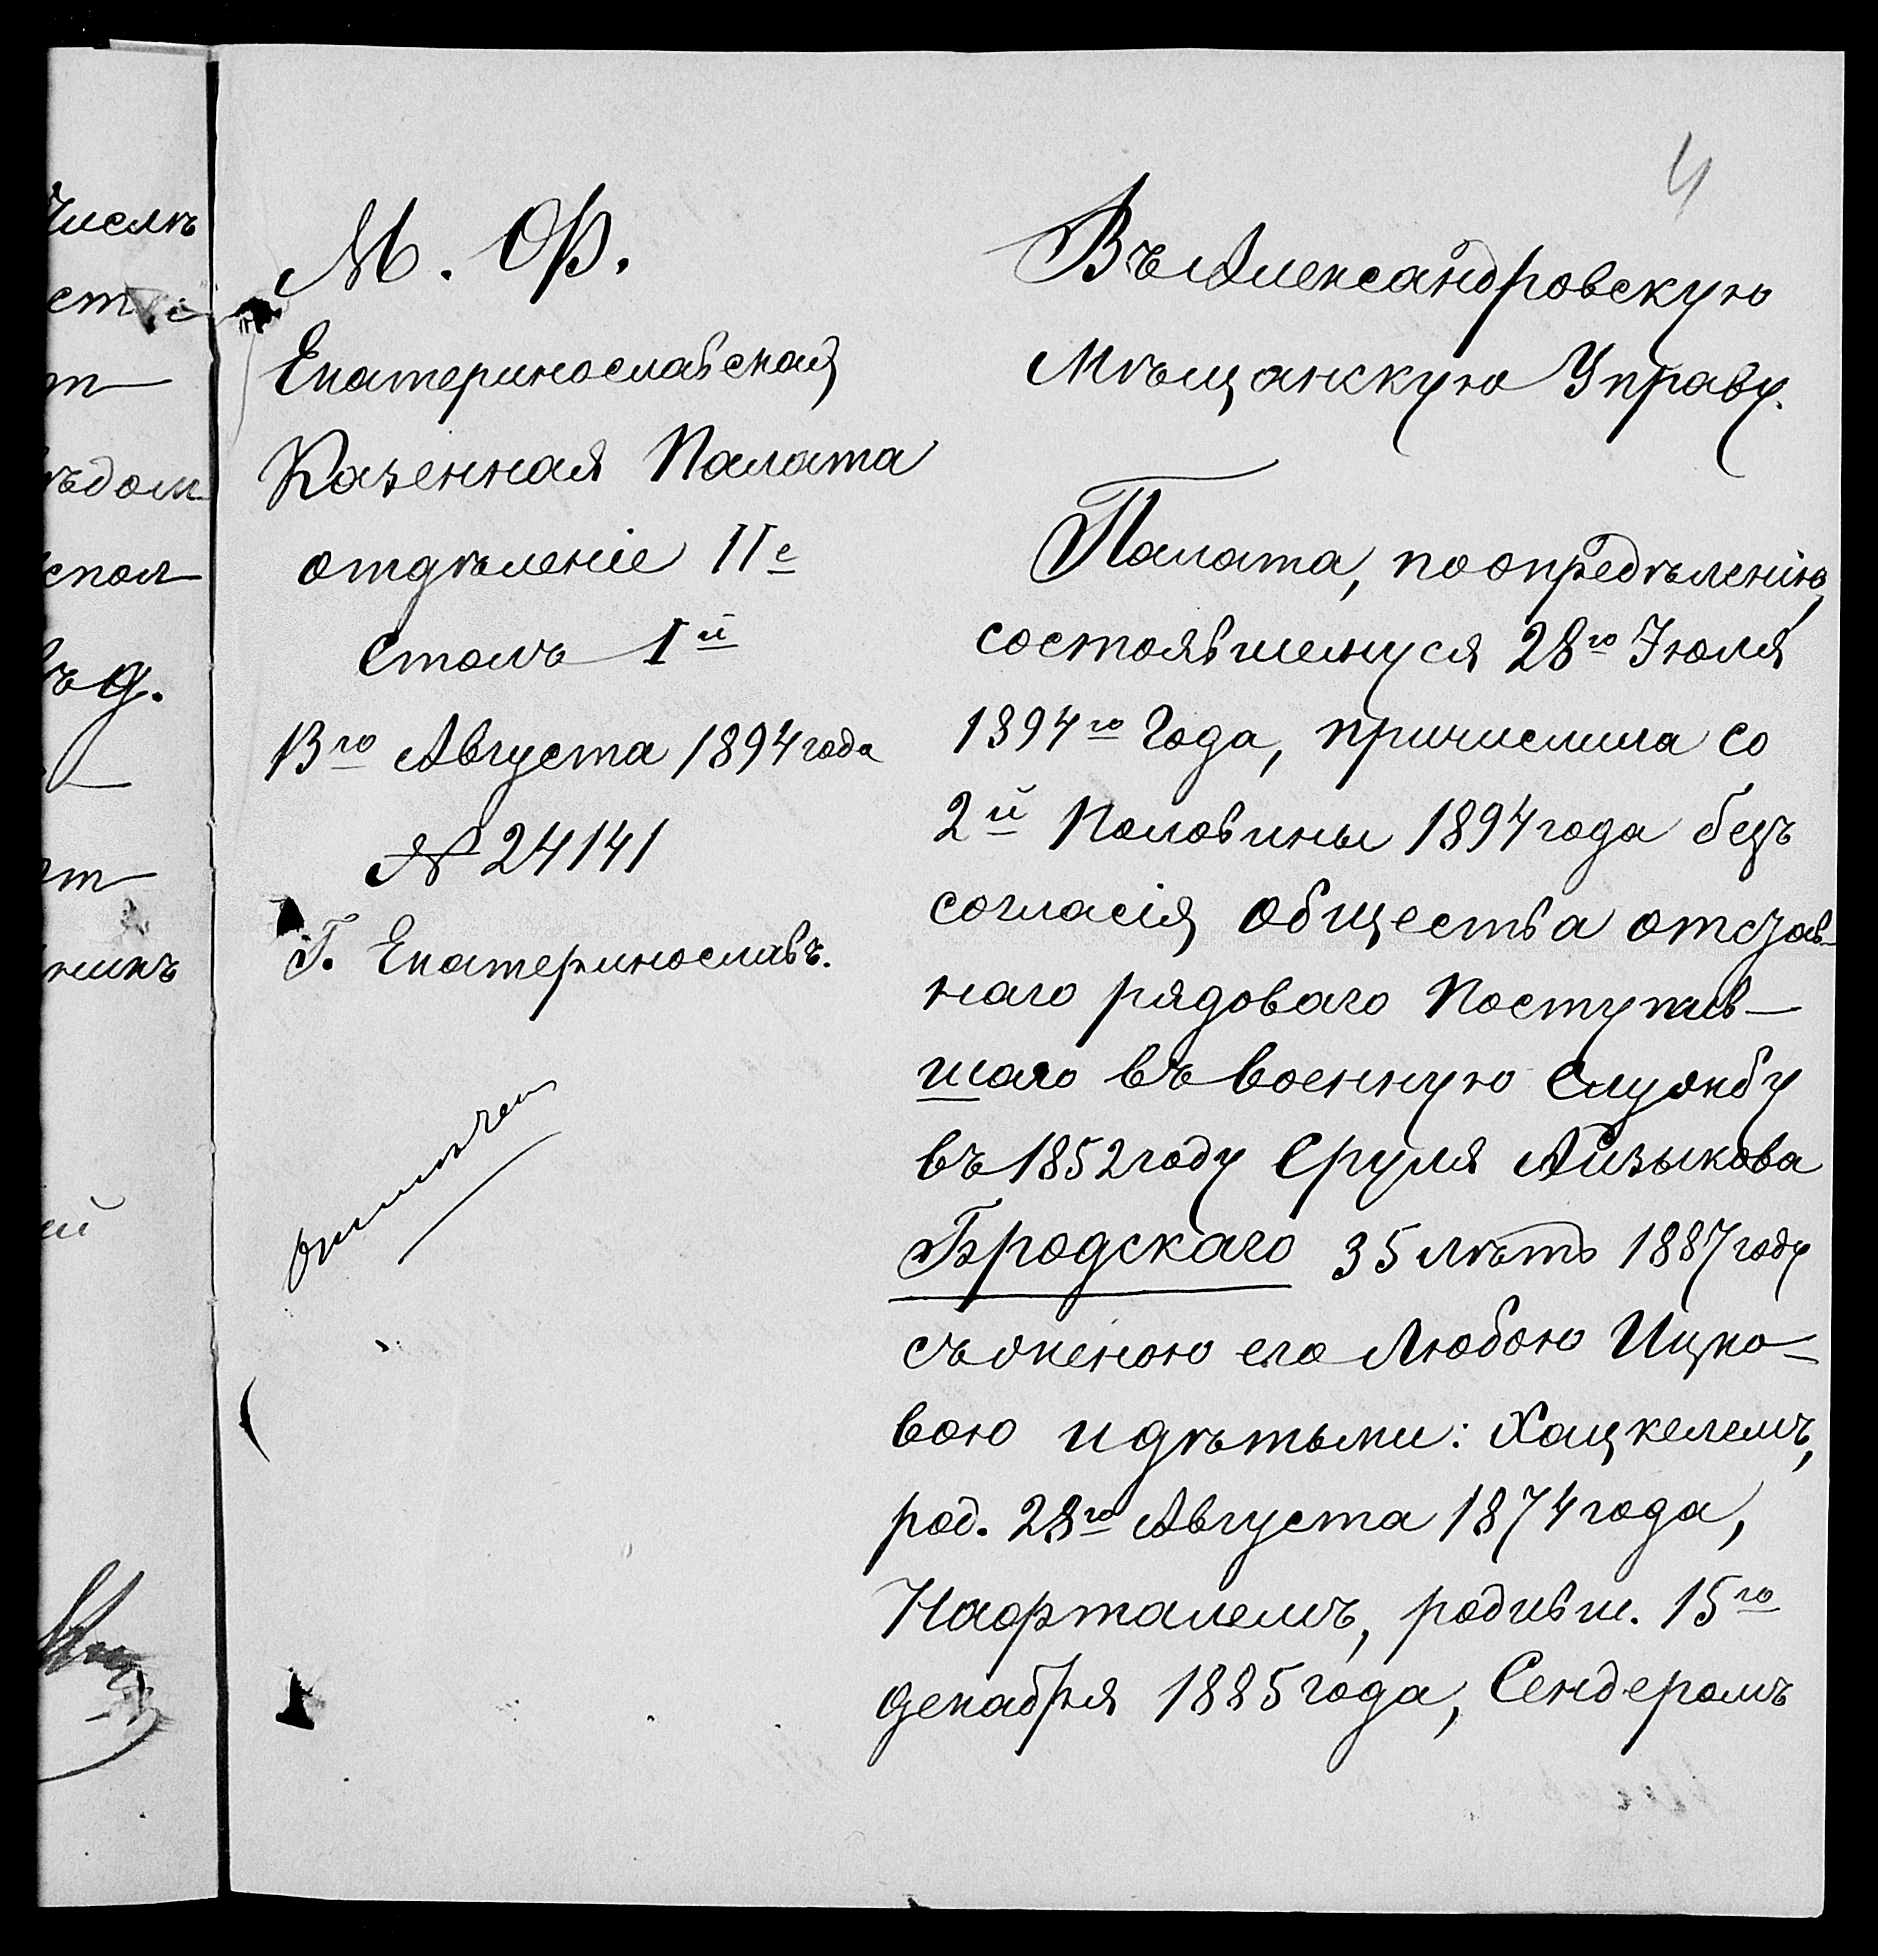 4
М. Ф.
Екатеринославская
Казенная Палата
отдѣленіе II е
Столъ I й
13 го Августа 1894 года
№ 24141
Г. Екатеринославъ.
Въ Александровскую
Мѣщанскую Управу.
Палата, по опредѣленію,
состоявшемуся 28 го Іюля
1894 го Года, причислила со
2 й Половины 1894 года безъ
согласія общества отстав-
наго рядоваго Поступив-
шаго въ военную Службу
въ 1852 году Сруля Айзыкова
Бродскаго 35 лѣтъ 1887 году
съ женою его Любою Ицко-
вою и дѣтьми: Хацкелемъ,
род. 28 го Августа 1874 года,
Нафталемъ, родивш. 15 го
декабря 1885 года, Сендеромъ
числѣ
т
ѣдом
спол
ъ д.
т
никъ
ей